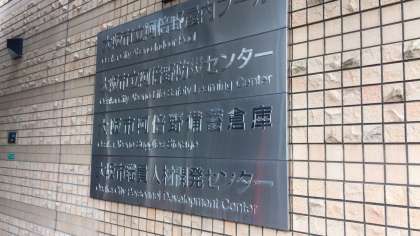 大阪市立阿倍野屋内プール
Osaka City Abeno Indoor Pool
大阪市立阿倍野防災センター
Osaka City Abeno Life Safety Learning Center
大阪市阿倍野備蓄倉庫
Osaka Abeno Supplies Storage
大阪市職員人材開発センター
Osaka City Personnel Development Center